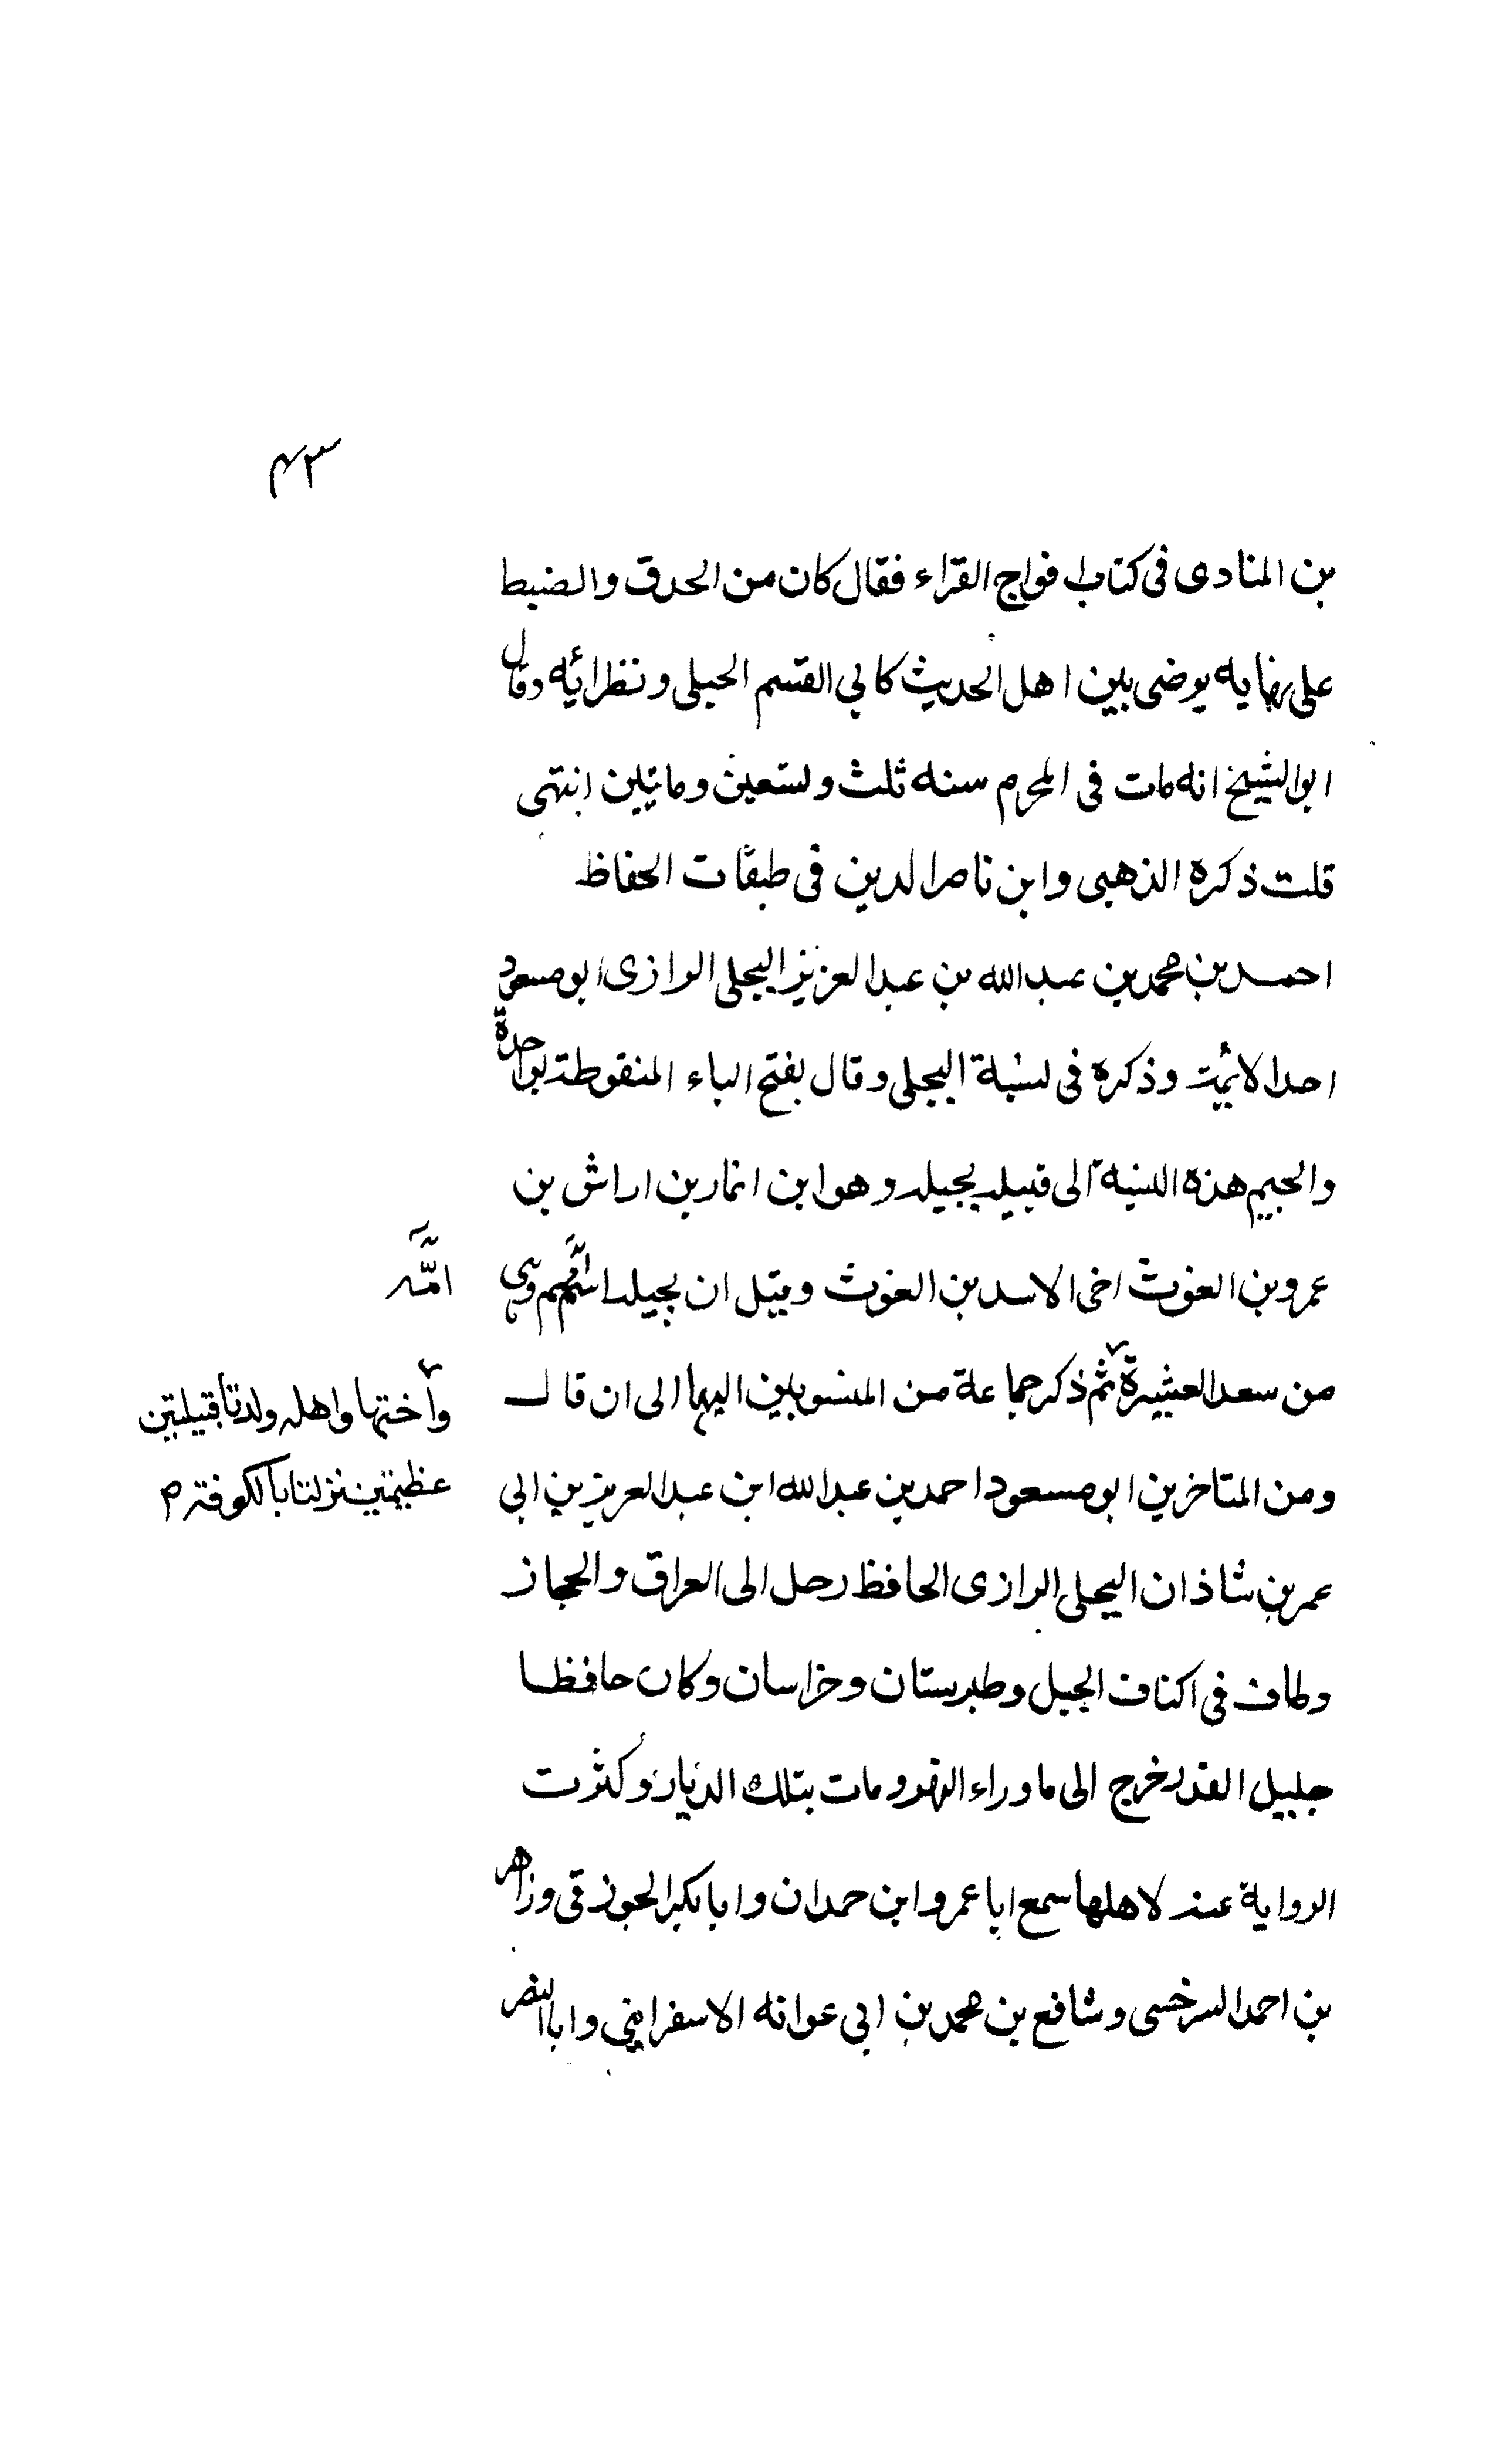 ٤٣
بن المنادى فى كتاب افواج القراء فقال كان من الحدق والضبط
على نهايه يوضى بين اهل الحديث كابي القسم الحبلى ونظرائه وقال
ابو الشيخ انه مات فى المحرم سنه ثلث وتسعين وماتين انتهى
قلت ذكره الذهبى وابن ناصر الدين فى طبقات الحفاظ
احمد بن محمد بن عبد الله بن عبد العزيز البجلى الرازى ابو مسعود
احد الائمة وذكره فى نسبة البجلى وقال بفتح الباء المنقوطة بواحدة
والجيم هذه النسبة الى قبيله بجيله وهو ابن انمار بن اراش بن
عمرو بن الغوث اخى الاسد بن الغوث وقيل ان بجيله اسم امهم وهى
امّه
من سعد العشيرة ثم ذكر جماعة من المنسوبين اليها الى ان قال
واختها واهله ولدتا قبيلتين
عظيمتين نزلتا بالكوفة م
ومن المتاخرين ابو مسعود احمد بن عبد الله ابن عبد العزيز بن ابى
عمر بن شاذان البجلى الرازى الحافظ رحل الى العراق والحجاز
وطاف فى اكناف الجبل وطبرستان وخراسان وكان حافظا
جليل القدر خرج الى ما وراء النهر ومات بتلك الديار وكثرت
الرواية عنه لاهلها سمع ابا عمرو ابن حمدان وابا بكر الجوزقى وزاهر
بن احمد السرخسى وشافع بن محمد بن ابى عوانه الاسفراينى وابا النضر